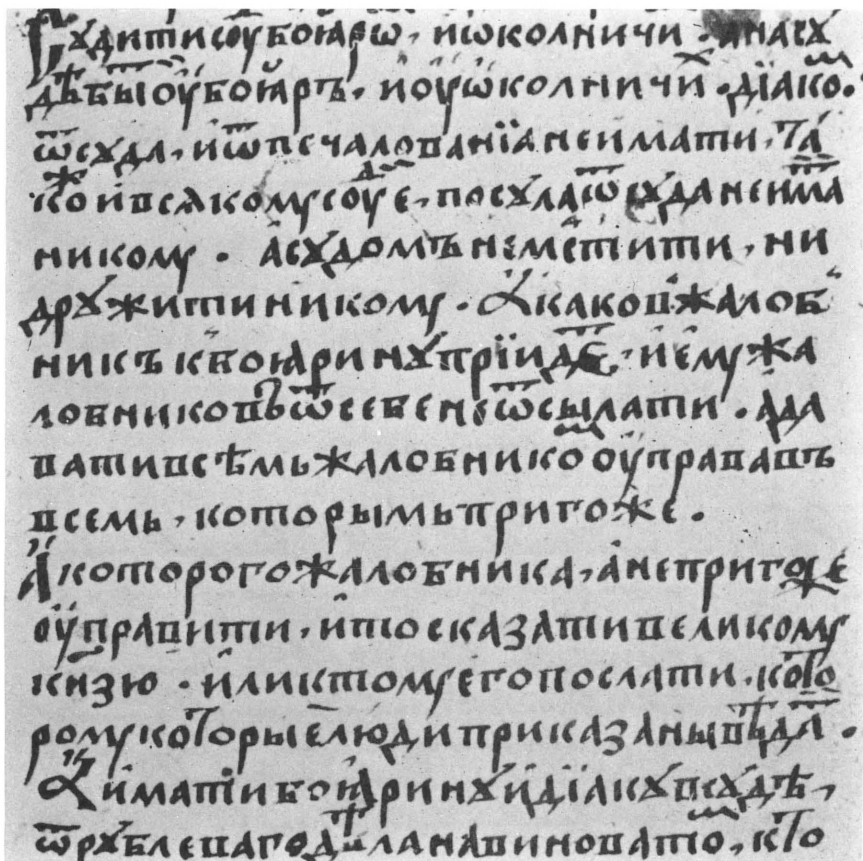 Сꙋдити сѹ боꙗрѡ, и ѡколничи. а на сꙋ
дѣ быⷮ оу боꙗръ, и оу ѡколничиⷯ. дїакоⷨ.
ѿ сꙋда, и ѿ печалованїа не имати, та
коⷤ и всякому соуⷣе, посꙋла ѿ сꙋда не имаⷮ
никому. а сꙋдомъ не мстити, ни
дрꙋжити никому. А каков жалоб
никъ к боꙗринꙋ прїидеⷮ, и ему жа
лобниковъ ѿ себе не ѿсылати. а да
вати всѣмь жалобникоⷨ оуправа въ
всемь, которымь пригоже.
А которого жалобника, а не пригоже
оуправити, и то сказати великому
кнзю. или к тому его послати, кото
рому которые люди приказаны вѣдаⷮ.
А имати боꙗринꙋ и дїакꙋ в сꙋдѣ,
ѿ рꙋблеваго дѣла на виноватоⷨ, кто